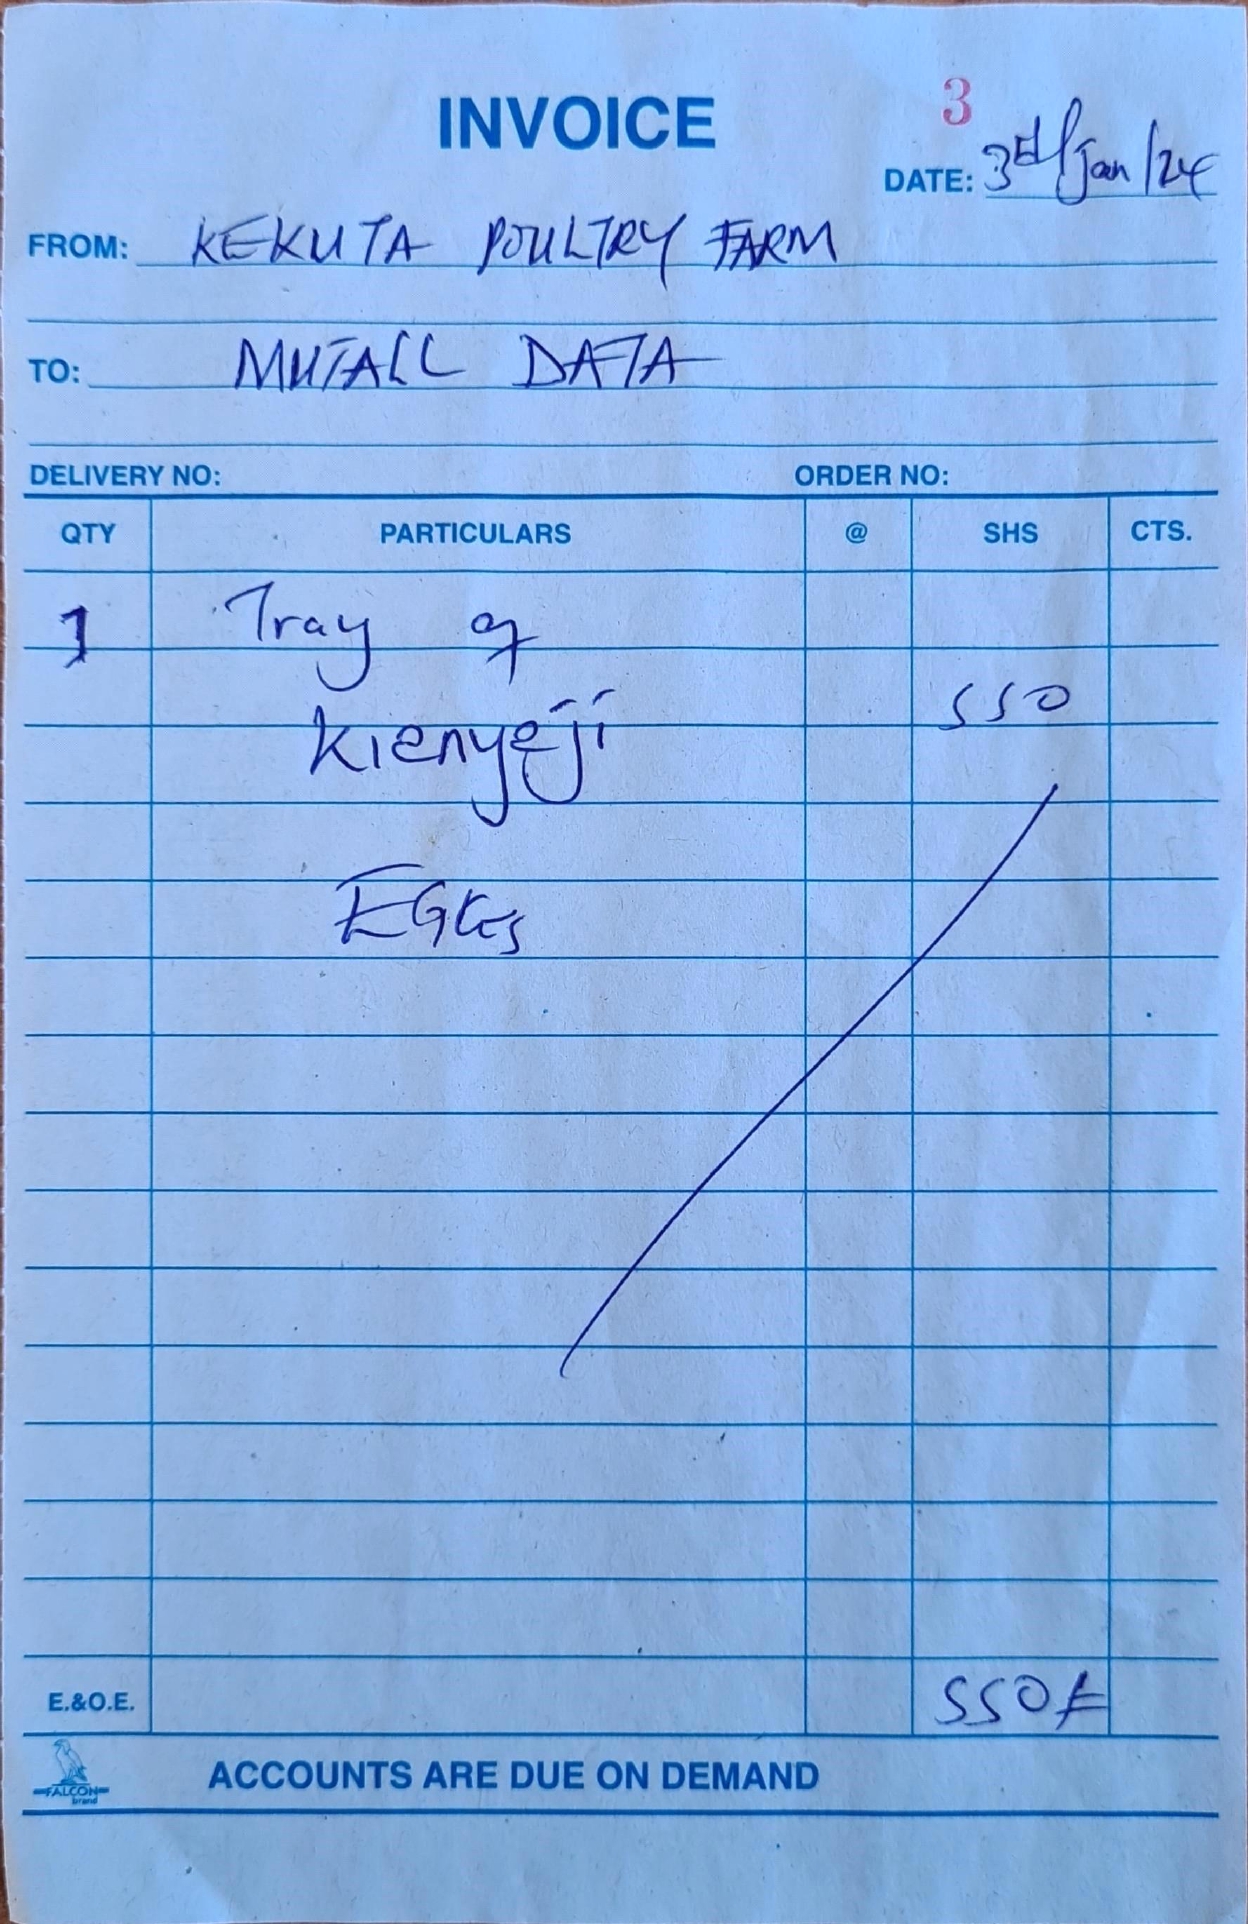 INVOICE
3
DATE: 3rd/Jan/24
FROM: KEKUTA POULTRY FARM
TO: MUTALL DATA
DELIVERY NO: ORDER NO:
QTY PARTICULARS @ SHS CTS.
1 Tray of
Kienyeji 550
EGGs
E.&O.E. 550/=
FALCON
brand
ACCOUNTS ARE DUE ON DEMAND